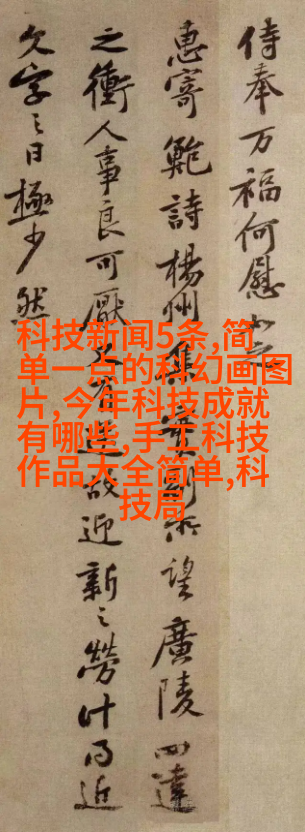 侍奉万福何慰如之
惠寄鲍詩楊州集實副所望廣陵四達
之衝人事良可厭又有送故迎新〻勞計
〻日極少然
科技新闻5条,简
单一点的科幻画图
片,今年科技成就
有哪些,手工科技
作品大全简单,科
技局